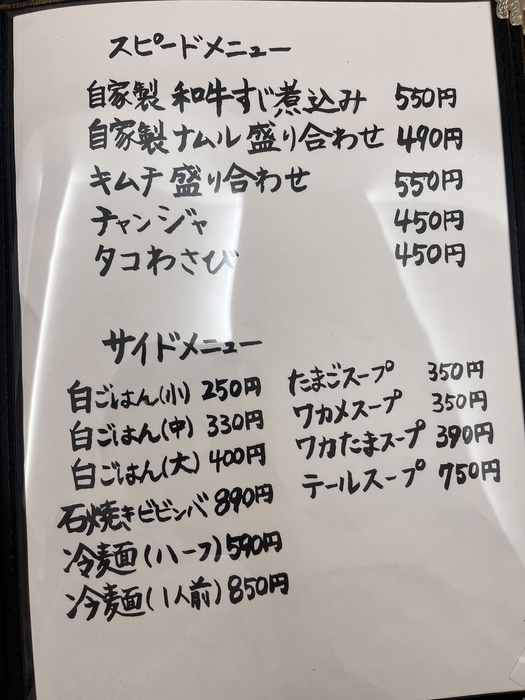 スピードメニュー
自家製 和牛すじ煮込み 550円
自家製ナムル盛り合わせ 490円
キムチ盛り合わせ 550円
チャンジャ 450円
タコわさび 450円
サイドメニュー
白ごはん(小) 250円
白ごはん(中) 330円
白ごはん(大) 400円
石焼きビビンバ 890円
冷麺(ハーフ) 590円
冷麺(1人前) 850円
たまごスープ 350円
ワカメスープ 350円
ワカたまスープ 390円
テールスープ 750円